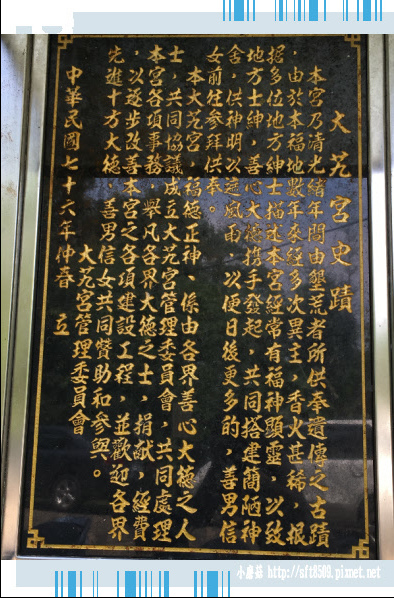 大芃宮史蹟
本宮乃清光緒年間由墾荒者所供奉遺傳之古蹟
，由於本福地數年來經多次異主，香火甚稀，根
招多位地方紳士描述本宮經常有福神顯靈，以致
地方士紳，善心大德攜手發起，共同搭建簡陋神
舍，供神明以遮風雨，以便日後更多的，善男信
女前往參拜供奉。
本大芃宮，福德正神、係由各界善心大德之人
士，共同協議成立大芃宮管理委員會，共同處理
本宮各項事務，舉凡各界大德之士，捐獻，經費
，以逐步改善本宮之各項建設工程，並歡迎各界
先進十方大德，善男信女共同贊助和參與。
大芃宮管理委員會
中華民國七十六年仲春 立
小蘑菇 http://aft0509.pixnet.net